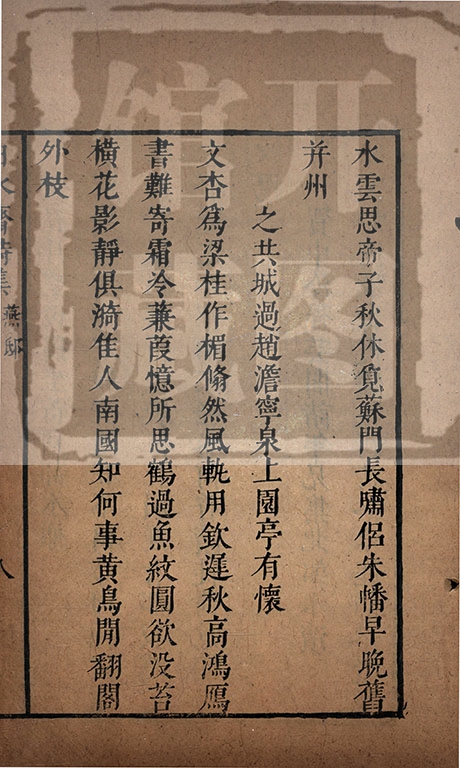 水雲思帝子秋休覓蘇門長嘯侣朱幡早晚舊
并州
之共城過趙澹寧泉上園亭有懷
文杏爲梁桂作楣翛然風軌用欽遲秋高鴻鴈
書難寄霜冷蒹葭憶所思鶴過魚紋圓欲没苔
横花影靜俱漪佳人南國知何事黄鳥閒翻閣
外枝
燕邸
八